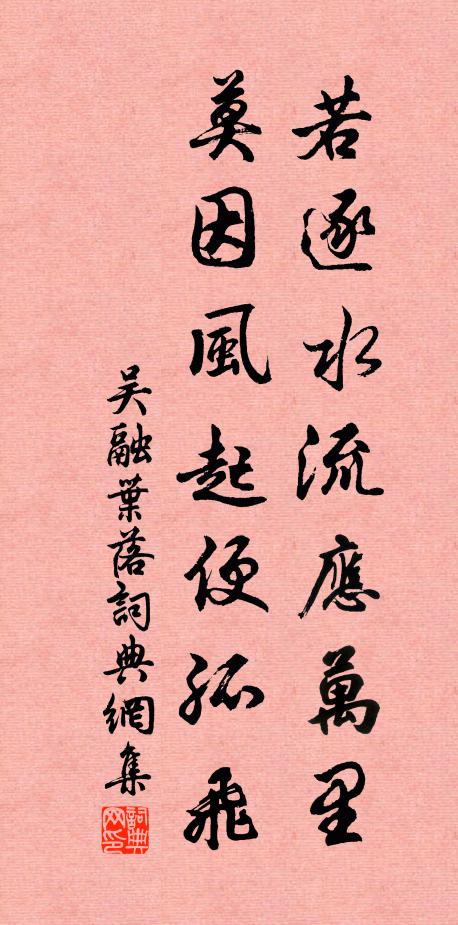 若逐水流應萬里
莫因風起便孤飛
吳融葉落詞典網集
詞典网印